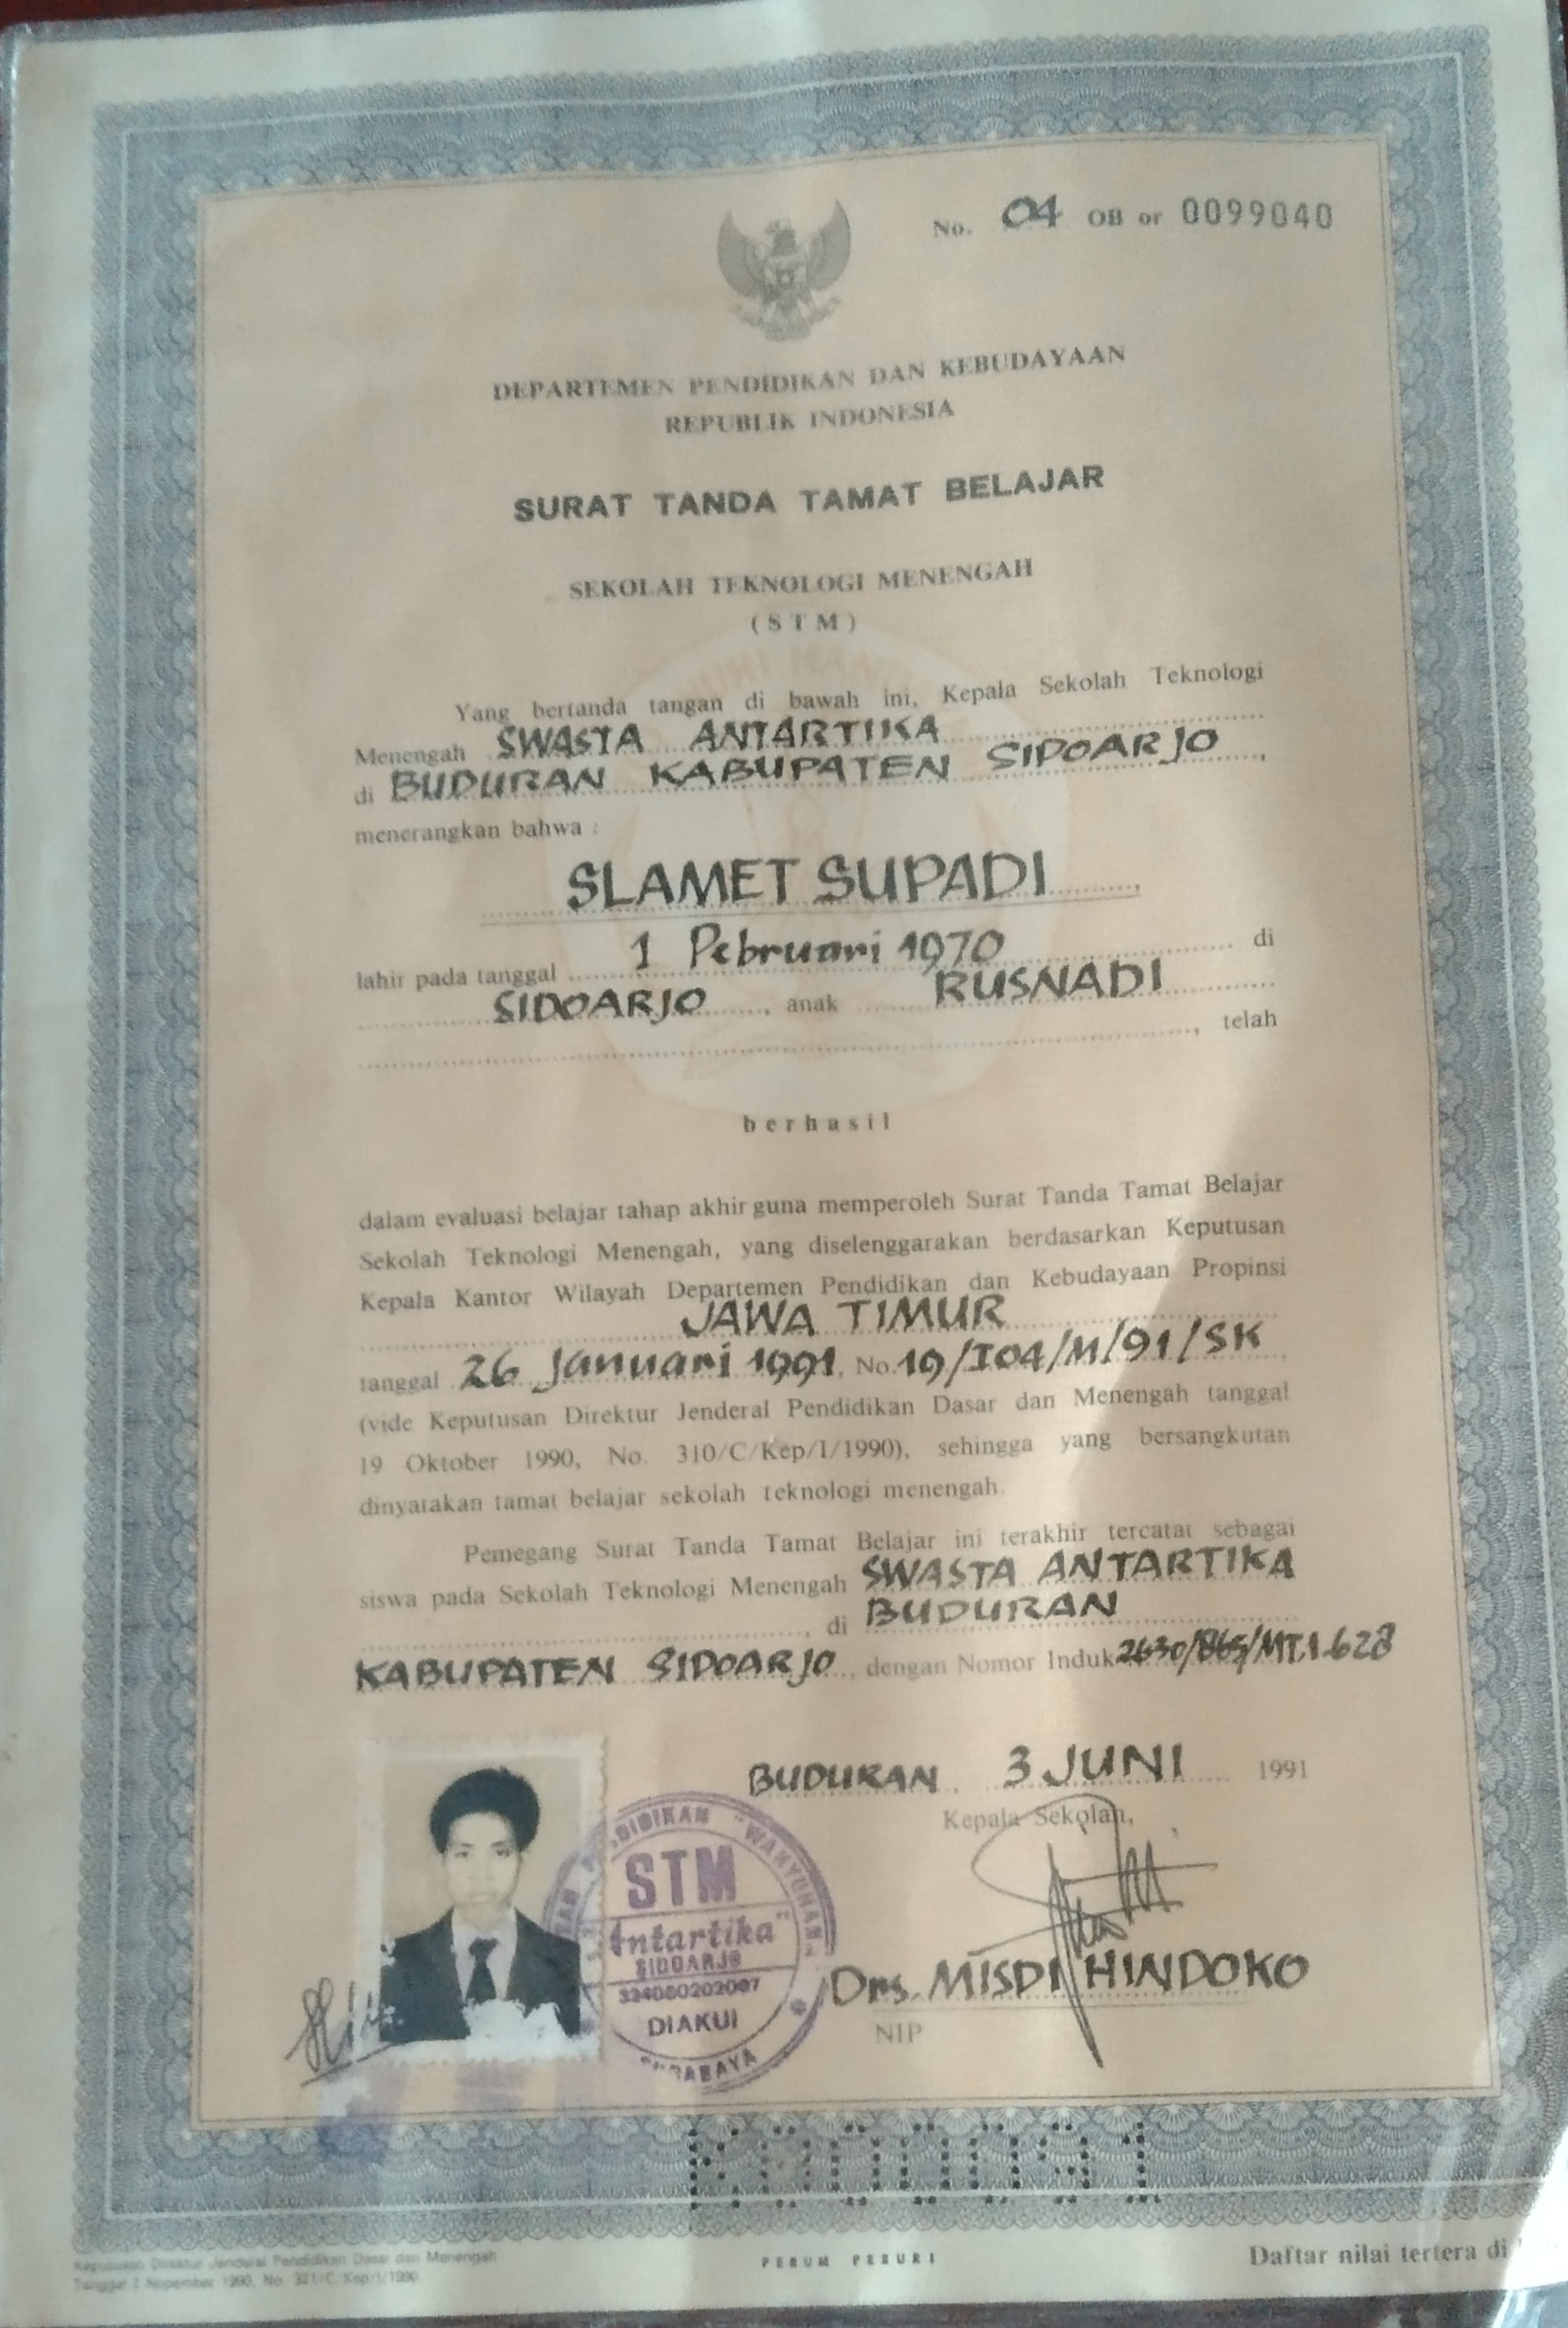 No. 04 OB or 0099040
DEPARTEMEN PENDIDIKAN DAN KEBUDAYAAN
REPUBLIK INDONESIA
SURAT TANDA TAMAT BELAJAR
SEKOLAH TEKNOLOGI MENENGAH
( S T M )
Yang bertanda tangan di bawah ini, Kepala Sekolah Teknologi
Menengah SWASTA ANTARTIKA
di BUDURAN KABUPATEN SIDOARJO,
menerangkan bahwa :
SLAMET SUPADI,
lahir pada tanggal 1 Pebruari 1970 di
SIDOARJO, anak RUSNADI
, telah
berhasil
dalam evaluasi belajar tahap akhir guna memperoleh Surat Tanda Tamat Belajar
Sekolah Teknologi Menengah, yang diselenggarakan berdasarkan Keputusan
Kepala Kantor Wilayah Departemen Pendidikan dan Kebudayaan Propinsi
JAWA TIMUR
tanggal 26 Januari 1991, No. 19/I04/M/91/SK,
(vide Keputusan Direktur Jenderal Pendidikan Dasar dan Menengah tanggal
19 Oktober 1990, No. 310/C/Kep/I/1990), sehingga yang bersangkutan
dinyatakan tamat belajar sekolah teknologi menengah.
Pemegang Surat Tanda Tamat Belajar ini terakhir tercatat sebagai
siswa pada Sekolah Teknologi Menengah SWASTA ANTARTIKA
, di BUDURAN
KABUPATEN SIDOARJO, dengan Nomor Induk 2630/865/MT.1.628
BUDURAN, 3 JUNI 1991
Kepala Sekolah,
"WAHYUHAN"
STM
"Antartika"
SIDOARJO
DIAKUI
SURABAYA
Drs. MISDI HINDOKO
NIP
Keputusan Direktur Jenderal Pendidikan Dasar dan Menengah
Tanggal 1 Nopember 1990, No. 321/C/Kep/I/1990
PERUM PERURI
Daftar nilai tertera di